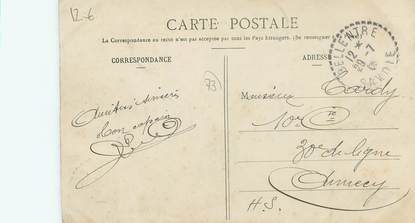 12.€
CARTE POSTALE
La Correspondance au recto n'est pas acceptée par tous les Pays étrangers. (Se renseigner
CORRESPONDANCE
ADRESSE
BELLENTRE
12 *
29 -7
SAVOIE
73
Amitiés sincères
Ton copain
Monsieur Tardy
10e Cie
30e de ligne
Annecy
H.S.